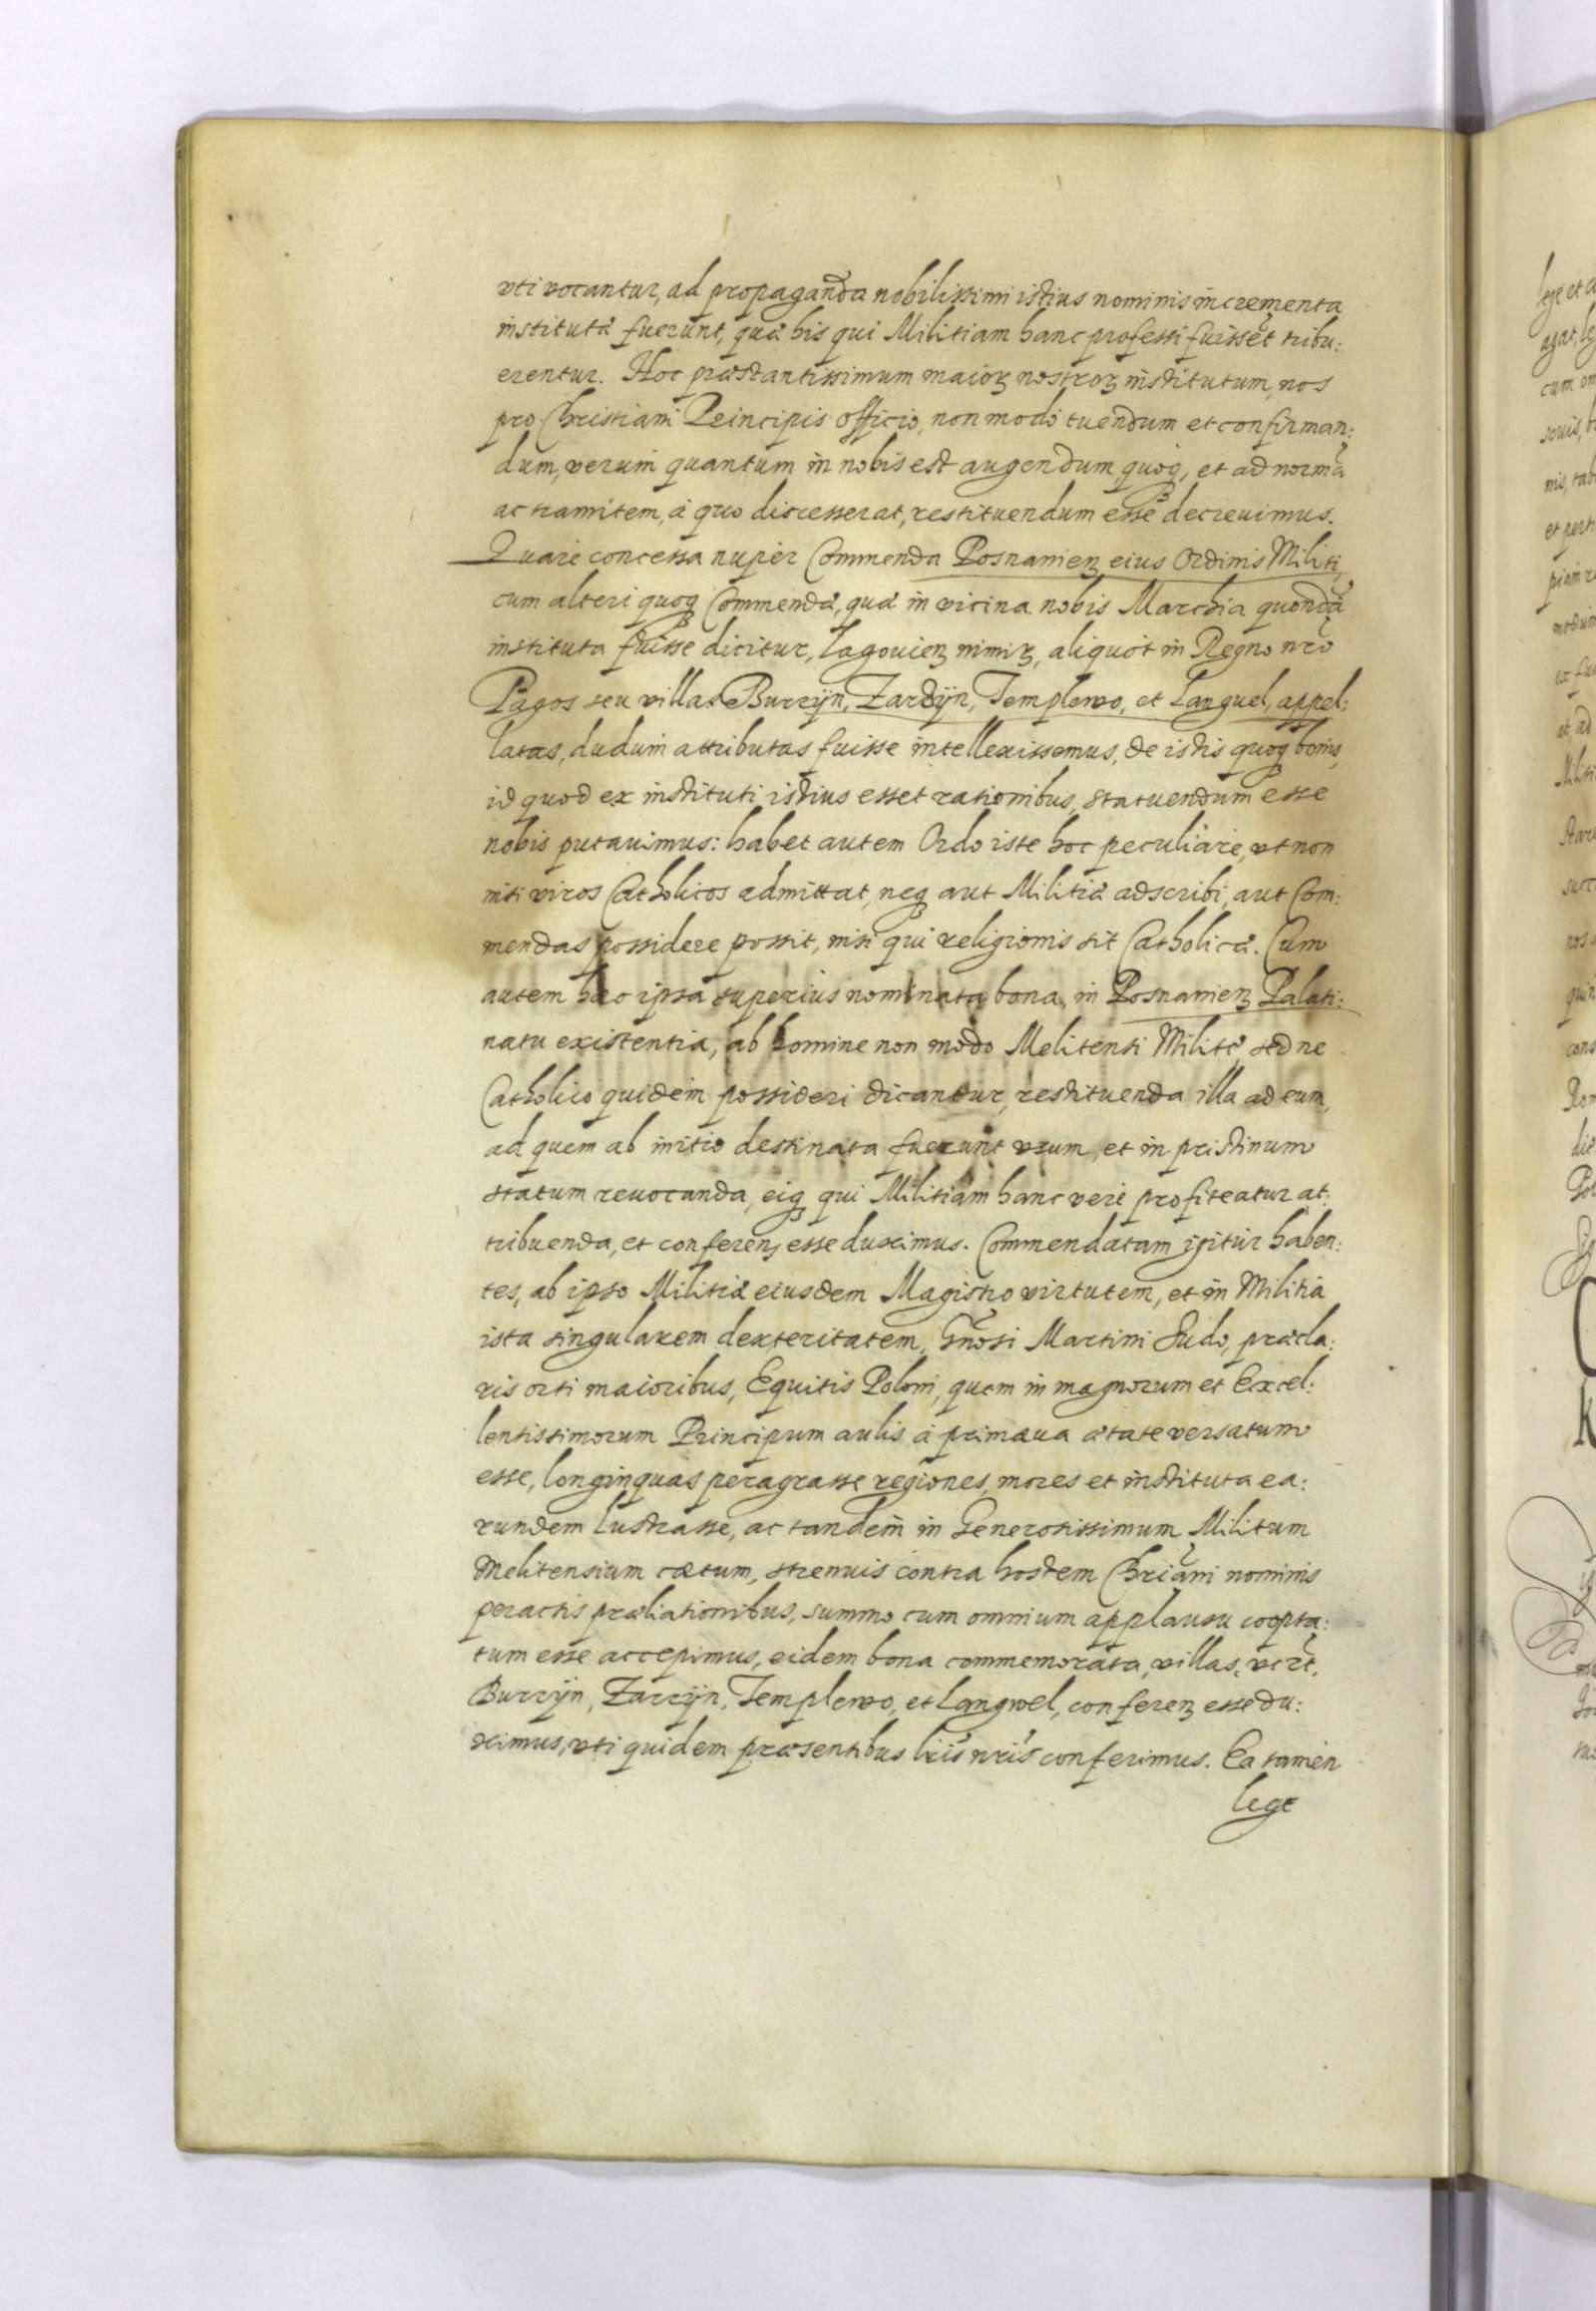 vti vocantur, ad propaganda nobilissimi istius nominis incrementa
institutæ fuerunt, quæ his qui Militiam hanc professi fuissēt tribu:
erentur. Hoc præstantissimum maioꝝ nostroꝝ institutum, nos
pro Christiani Principis officio, non modò tuendum et confirman:
dum, verum quantum in nobis est augendum quoqꝫ, et ad normā
ac tramitem, à quo discesserat, restituendum esse decreuimus.
Quare concessa nuper Commenda Posnanienꝫ eius Ordinis Militi,
cum alteri quoqꝫ Commendæ, quæ in vicina nobis Marchia quondā
instituta fuisse dicitur, Lagouienꝫ nimiꝝ, aliquot in Regno nrō
Pagos seu villas Burzyn, Zardyn, Templewo, et Languel, appel:
latas, dudum attributas fuisse intellexissemus, de istis quoqꝫ bonis,
id quod ex instituti istius esset rationibus, statuendum esse
nobis putauimus: habet autem Ordo iste hoc peculiare, vt non
nisi viros Catholicos admittat, neqꝫ aut Militiæ adscribi, aut Com:
mendas possidere possit, nisi qui religionis sit Catholicæ. Cum
autem hæc ipsa superius nominata bona, in Posnanienꝫ Palati:
natu existentia, ab homine non modo Melitensi Milite, sed ne
Catholico quidem possideri dicantur, restituenda illa ad eum,
ad quem ab initio destinata fuerunt vsum, et in pristinum
statum reuocanda, eiqꝫ qui Militiam hanc verè profiteatur at:
tribuenda, et conferenꝫ esse duximus. Commendatam igitur haben:
tes, ab ipso Militiæ eiusdem Magistro virtutem, et in Militia
ista singularem dexteritatem, Gn̄osi Martini Sudo, præcla:
ris orti maioribus, Equitis Poloni, quem in magnorum et Excel:
lentissimorum Principum aulis à primæua ætate versatum
esse, longinquas peragrasse regiones, mores et instituta ea:
rundem lustrasse, ac tandem in Generosissimum Militum
Melitensium cætum, strenuis contra hostem Chriāni nominis
peractis præliationibus, summo cum omnium applausu coopta:
tum esse accepimus, eidem bona commemorata, villas, vcrt.
Burzyn, Zarzyn, Templewo, et Langwel, conferenꝫ esse du:
ximus, vti quidem præsentibus lrīs nrīs conferimus. Ea tamen
lege